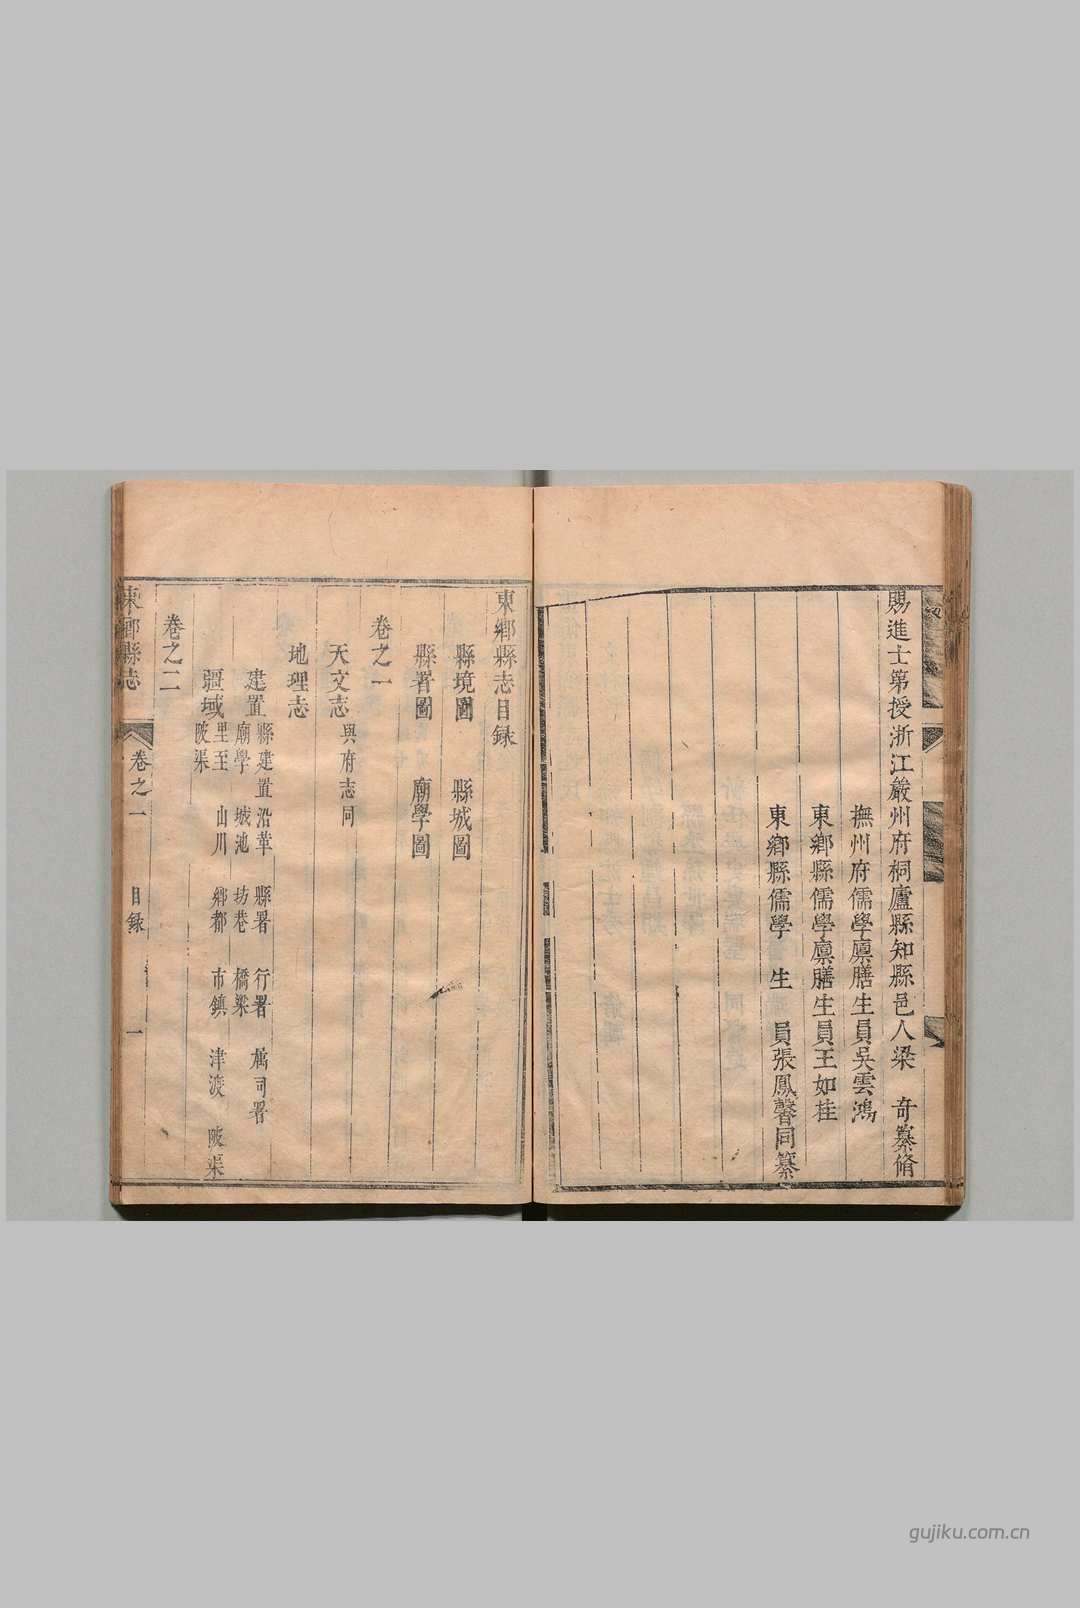 賜進士第授浙江嚴州府桐廬縣知縣邑人梁　奇纂脩
撫州府儒學廩膳生員吳雲鴻
東鄉縣儒學廩膳生員王如桂
東鄉縣儒學　生　員張鳳馨同纂
東鄉縣志目録
縣境圖　縣城圖
縣署圖　廟學圖
卷之一
天文志　與府志同
地理志
建置　縣建置沿革　縣署　行署　屬司署
廟學　城池　坊巷　橋梁
疆域　里至　山川　鄉都　市鎮　津渡　陂渠
陂渠
卷之二
東鄉縣志　卷之一　目録　一
gujiku.com.cn